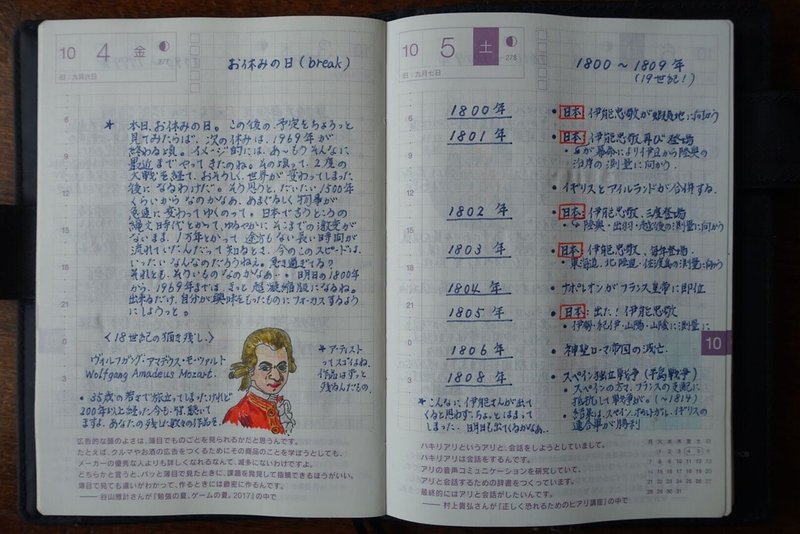 10
4
金
277
旧:九月六日
お休みの日 (break)
* 本日、お休みの日。この後の予定をちょろっと
見てみたらば、次の休みは、1969年が
終わる頃。イメージ的には、あ〜もうそんなに
最近までやってきたのね。その頃って、2度の
大戦を経て、おそらく世界が変わってしまった
後になるわけだ。そう思うと、だいたい1500年
くらいからなのかなあ、めまぐるしく物事が
急速に変わってゆくのって。日本で言うところの
縄文時代とかって、ゆるやかにそこまでの激変が
ないまま、1万年とかって途方もない長い時間が
流れていたんだって知ると、今のこのスピードは、
いったいなんなのだろうねぇ。急ぎ過ぎてる?
それとも、そういうものなのかなあ・・明日の1800年
から、1969年までは、きっと超凝縮版になるね。
出来るだけ、自分が興味をもったものにフォーカスするように
にしようっと。
〈18世紀の描き残し〉
ヴォルフガング・アマデウス・モーツァルト
Wolfgang Amadeus Mozart.
• 35歳の若さで旅立ってしまったけれど
200年以上経った今も、皆、聴いて
ますよ、あなたの残した数々の作品を。
* アーティスト
ってスゴイよね、
作品はずっと
残るんだもの。
広告的な頭のよさは、薄目でものごとを見られるかだと思うんです。
たとえば、クルマやお酒の広告をつくるためにその商品のことを学ぼうとしても、
メーカーの優秀な人よりも詳しくなれるなんて、滅多にないわけですよ。
どちらかと言うと、パッと薄目で見たときに、課題を発見して指摘できるほうがいい。
薄目で見ても違いがわかって、作るときには緻密に作るんです。
——谷山雅計さんが『勉強の夏、ゲームの夏。2017』の中で
10
5
土
278
旧:九月七日
1800 〜 1809 年
(19世紀!)
1800 年
• 日本:伊能忠敬が蝦夷地に向かう
1801 年
• 日本:伊能忠敬再び登場
• 幕命により伊豆から陸奥の
沿岸の測量に向かう.
• イギリスとアイルランドが合併する.
1802 年
• 日本:伊能忠敬、三度登場
陸奥・出羽・越後の測量に向かう
1803 年
• 日本:伊能忠敬、毎年登場.
• 東海道、北陸道・佐渡島の測量に向かう
1804 年
• ナポレオンがフランス皇帝に即位
1805 年
• 日本:出た!伊能忠敬
• 伊勢・紀伊・山陽・山陰に測量に
1806 年
• 神聖ローマ帝国の滅亡.
1808 年
• スペイン独立戦争(半島戦争)
• スペインの方々、フランスの支配に
抵抗して戦争が。(〜1814)
• 結果は、スペイン、ポルトガル、イギリスの
連合軍が勝利
* こんなに、伊能さんが出て
くると思わず、ちょっとはまって
しまった. 明日も出てくるかなあ..
10
ハキリアリというアリと、会話をしようとしていまして。
ハキリアリは会話をするんです。
アリの音声コミュニケーションを研究していて、
アリと会話するための辞書をつくっています。
最終的にはアリと会話がしたいんです。
——村上貴弘さんが『正しく恐れるためのヒアリ講座』の中で
月 火 水 木 金 土 日
1 2 3 4 5 6
7 8 9 10 11 12 13
14 15 16 17 18 19 20
21 22 23 24 25 26 27
28 29 30 31